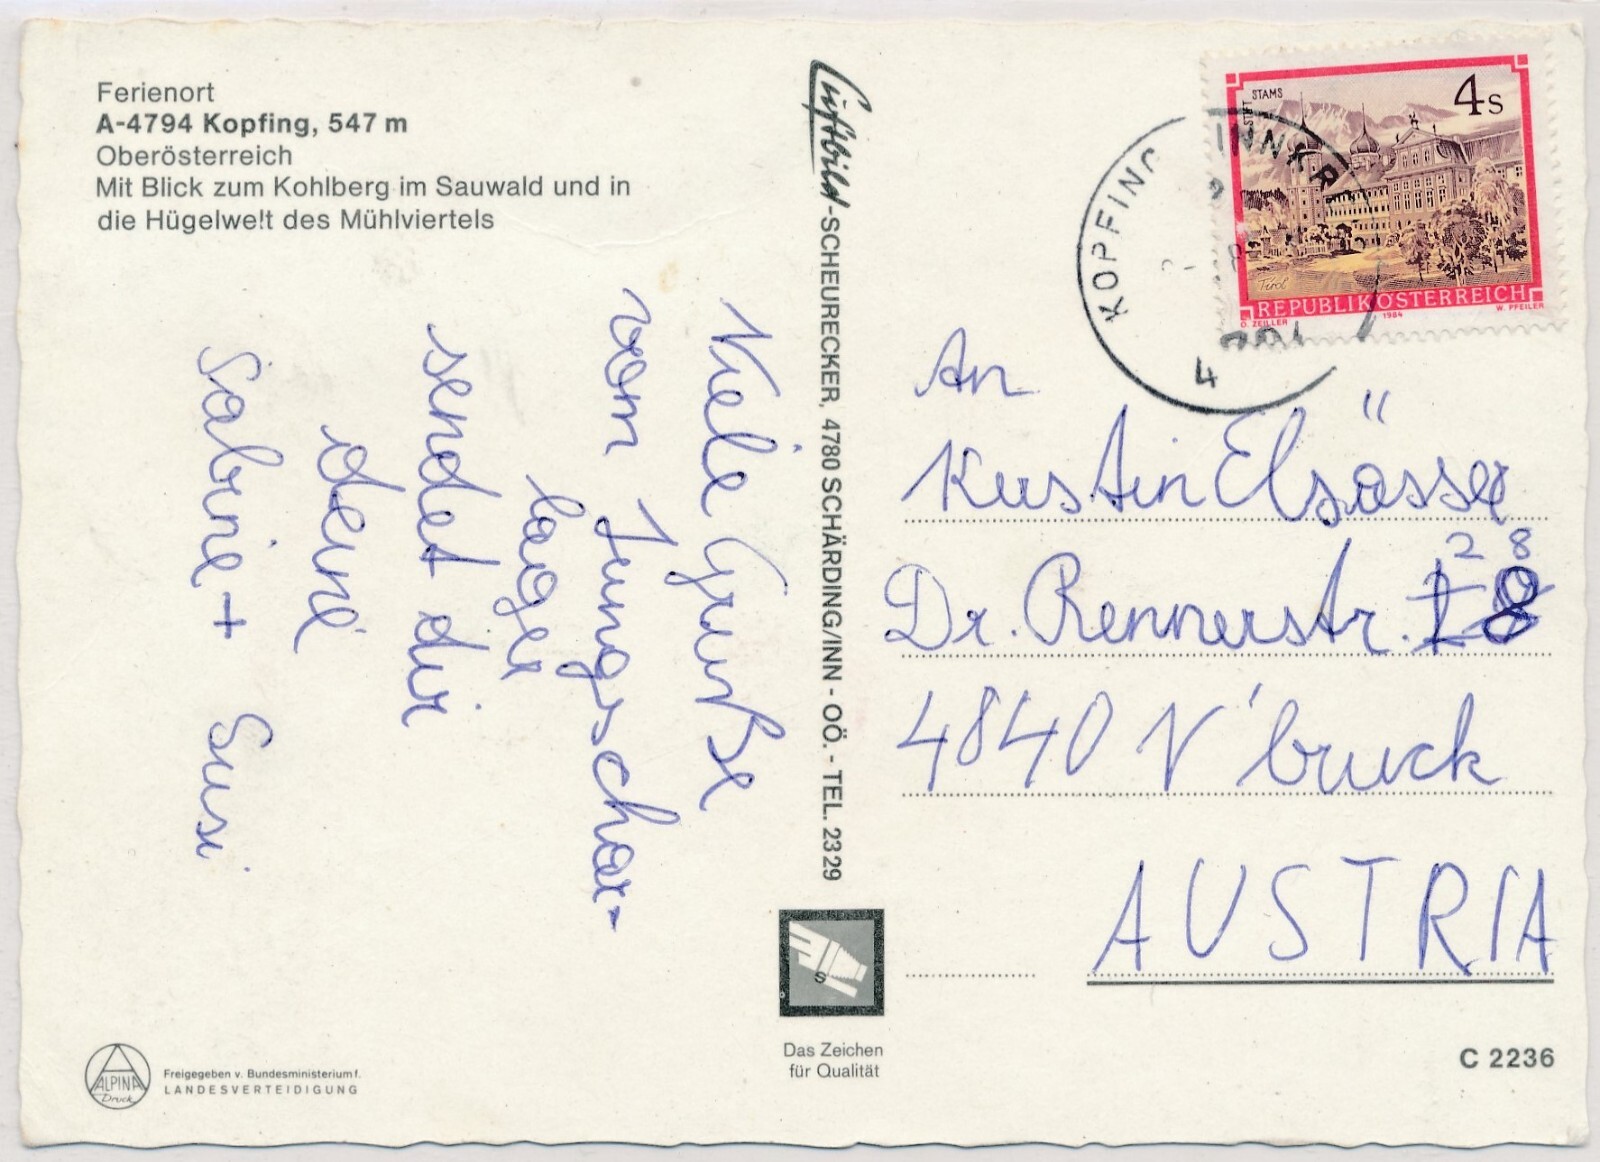 Ferienort
A-4794 Kopfing, 547 m
Oberösterreich
Mit Blick zum Kohlberg im Sauwald und in
die Hügelwelt des Mühlviertels
Viele Grüße
vom Jungschar-
lager
sendet dir
deine
Sabine + Susi
Luftbild-SCHEURECKER, 4780 SCHÄRDING/INN - OÖ. - TEL. 2329
STIFT STAMS
4S
Tirol
REPUBLIK ÖSTERREICH
O. ZEILLER 1984 W. PFEILER
KOPFING INNKR
4
An
Kerstin Elsässer
2 8
Dr. Rennerstr. 8
4840 V'bruck
AUSTRIA
S
Das Zeichen
für Qualität
C 2236
ALPINA
Druck
Freigegeben v. Bundesministerium f.
LANDESVERTEIDIGUNG